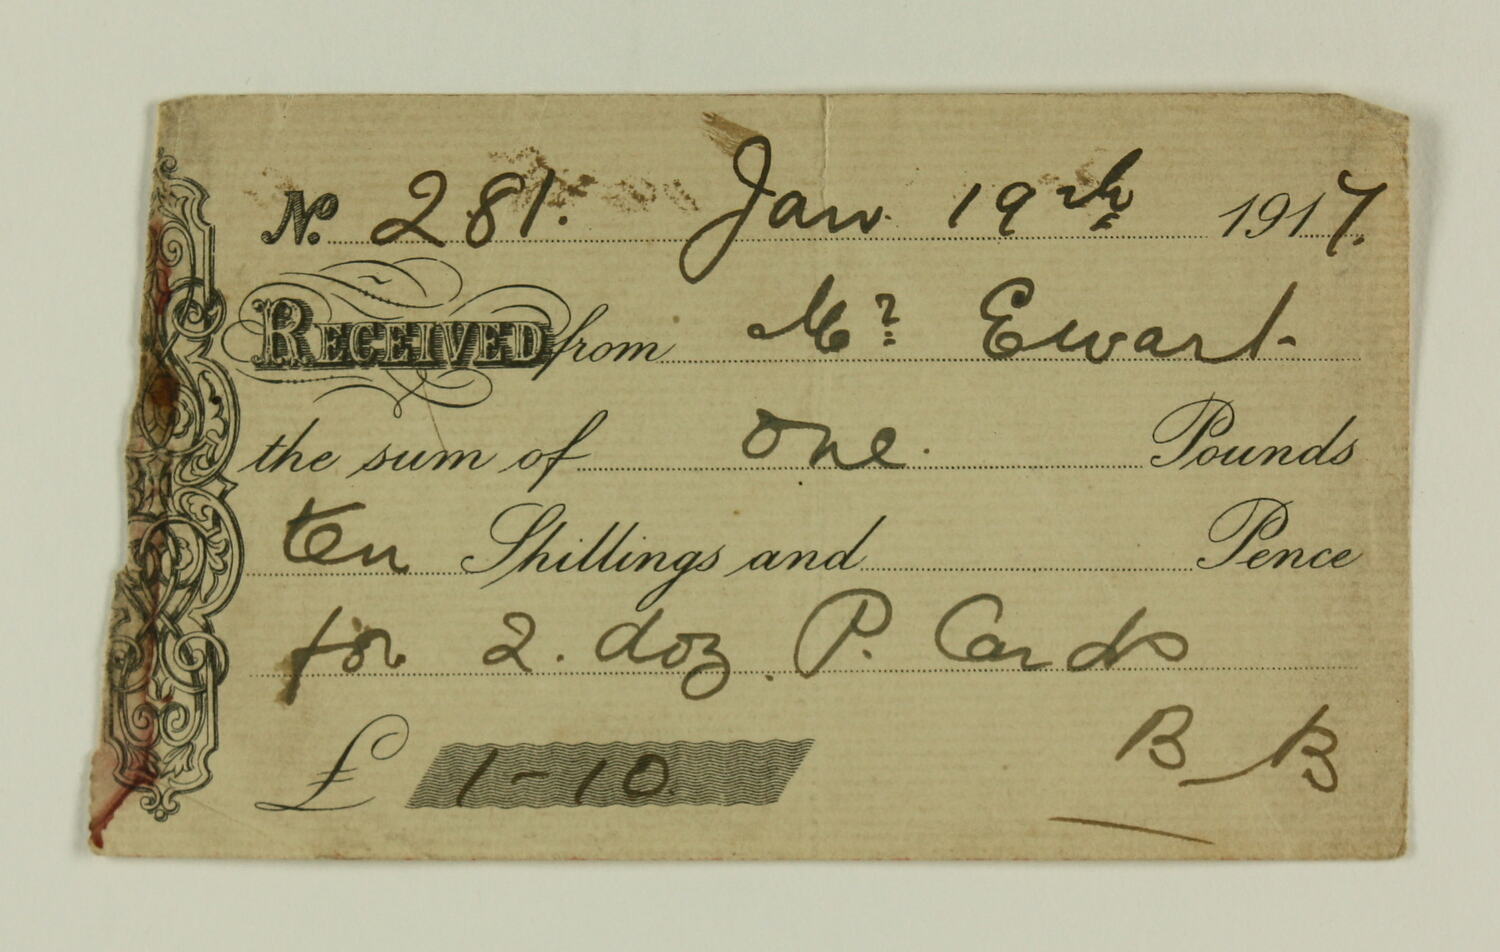 No. 281. Jan 19th 1917.
RECEIVED from Mr. Ewart
the sum of One. Pounds
ten Shillings and Pence
for 2. doz. P. Cards
B B
£ 1-10.